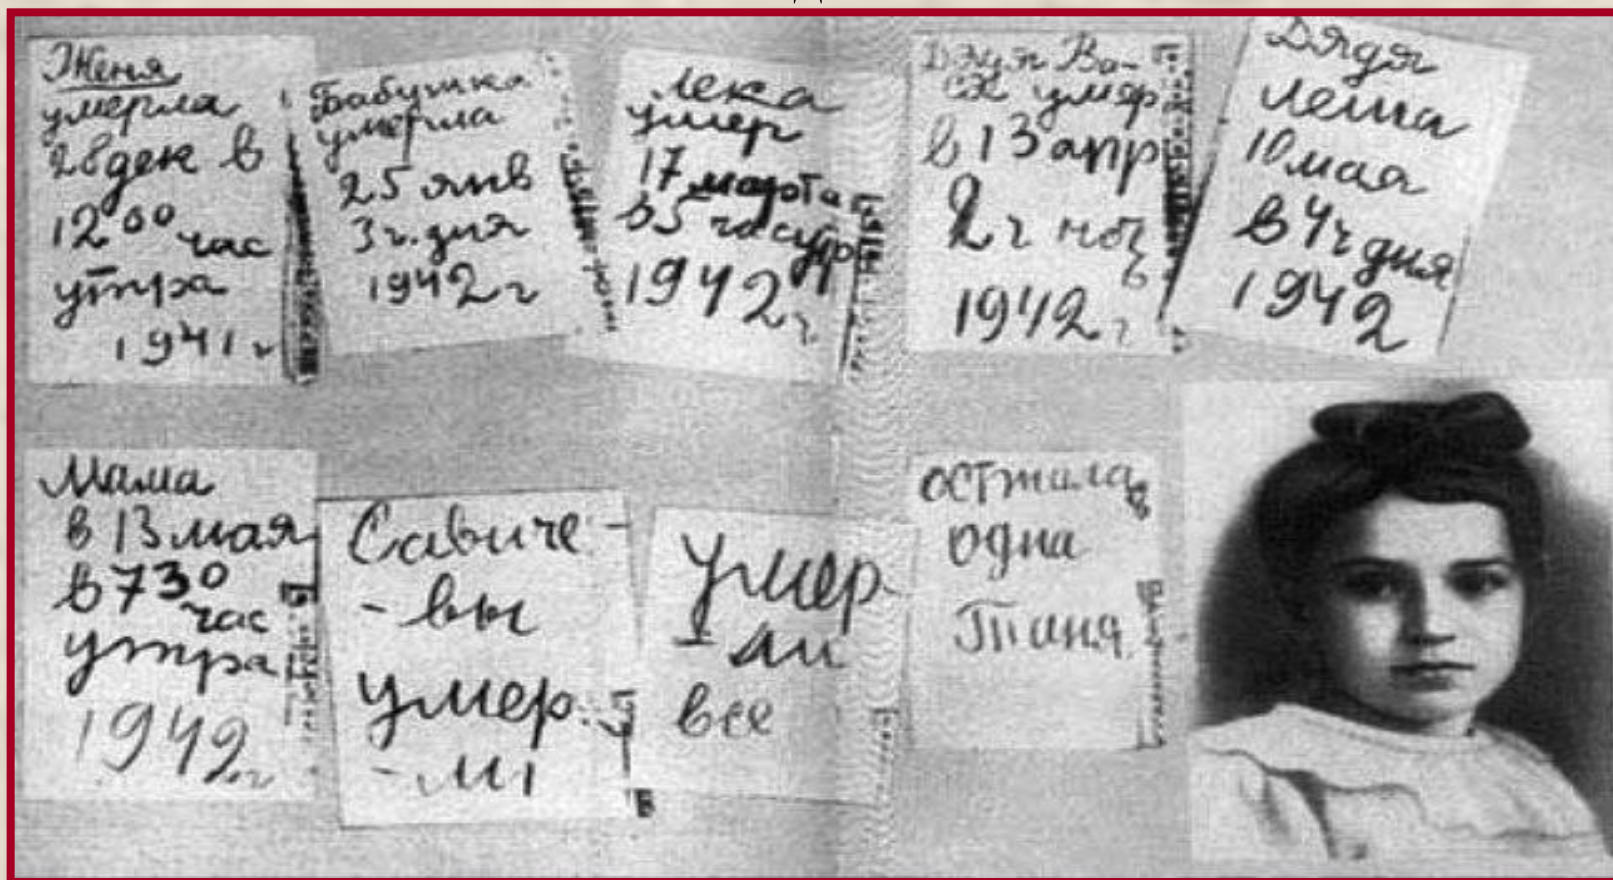 Женя
умерла
28 дек в
12 00 час
утра
1941 г
Бабушка
умерла
25 янв
3 ч. дня
1942 г
Лека
умер
17 марта
в 5 час утр
1942 г
Дядя Ва-
ся умер
в 13 апр
2 ч ноч
1942 г
Дядя
Леша
10 мая
в 4 ч дня
1942
Мама
в 13 мая
в 7 30
час
утра
1942 г
Савиче-
-вы
умер-
-ли
Умер-
-ли
все
осталась
одна
Таня